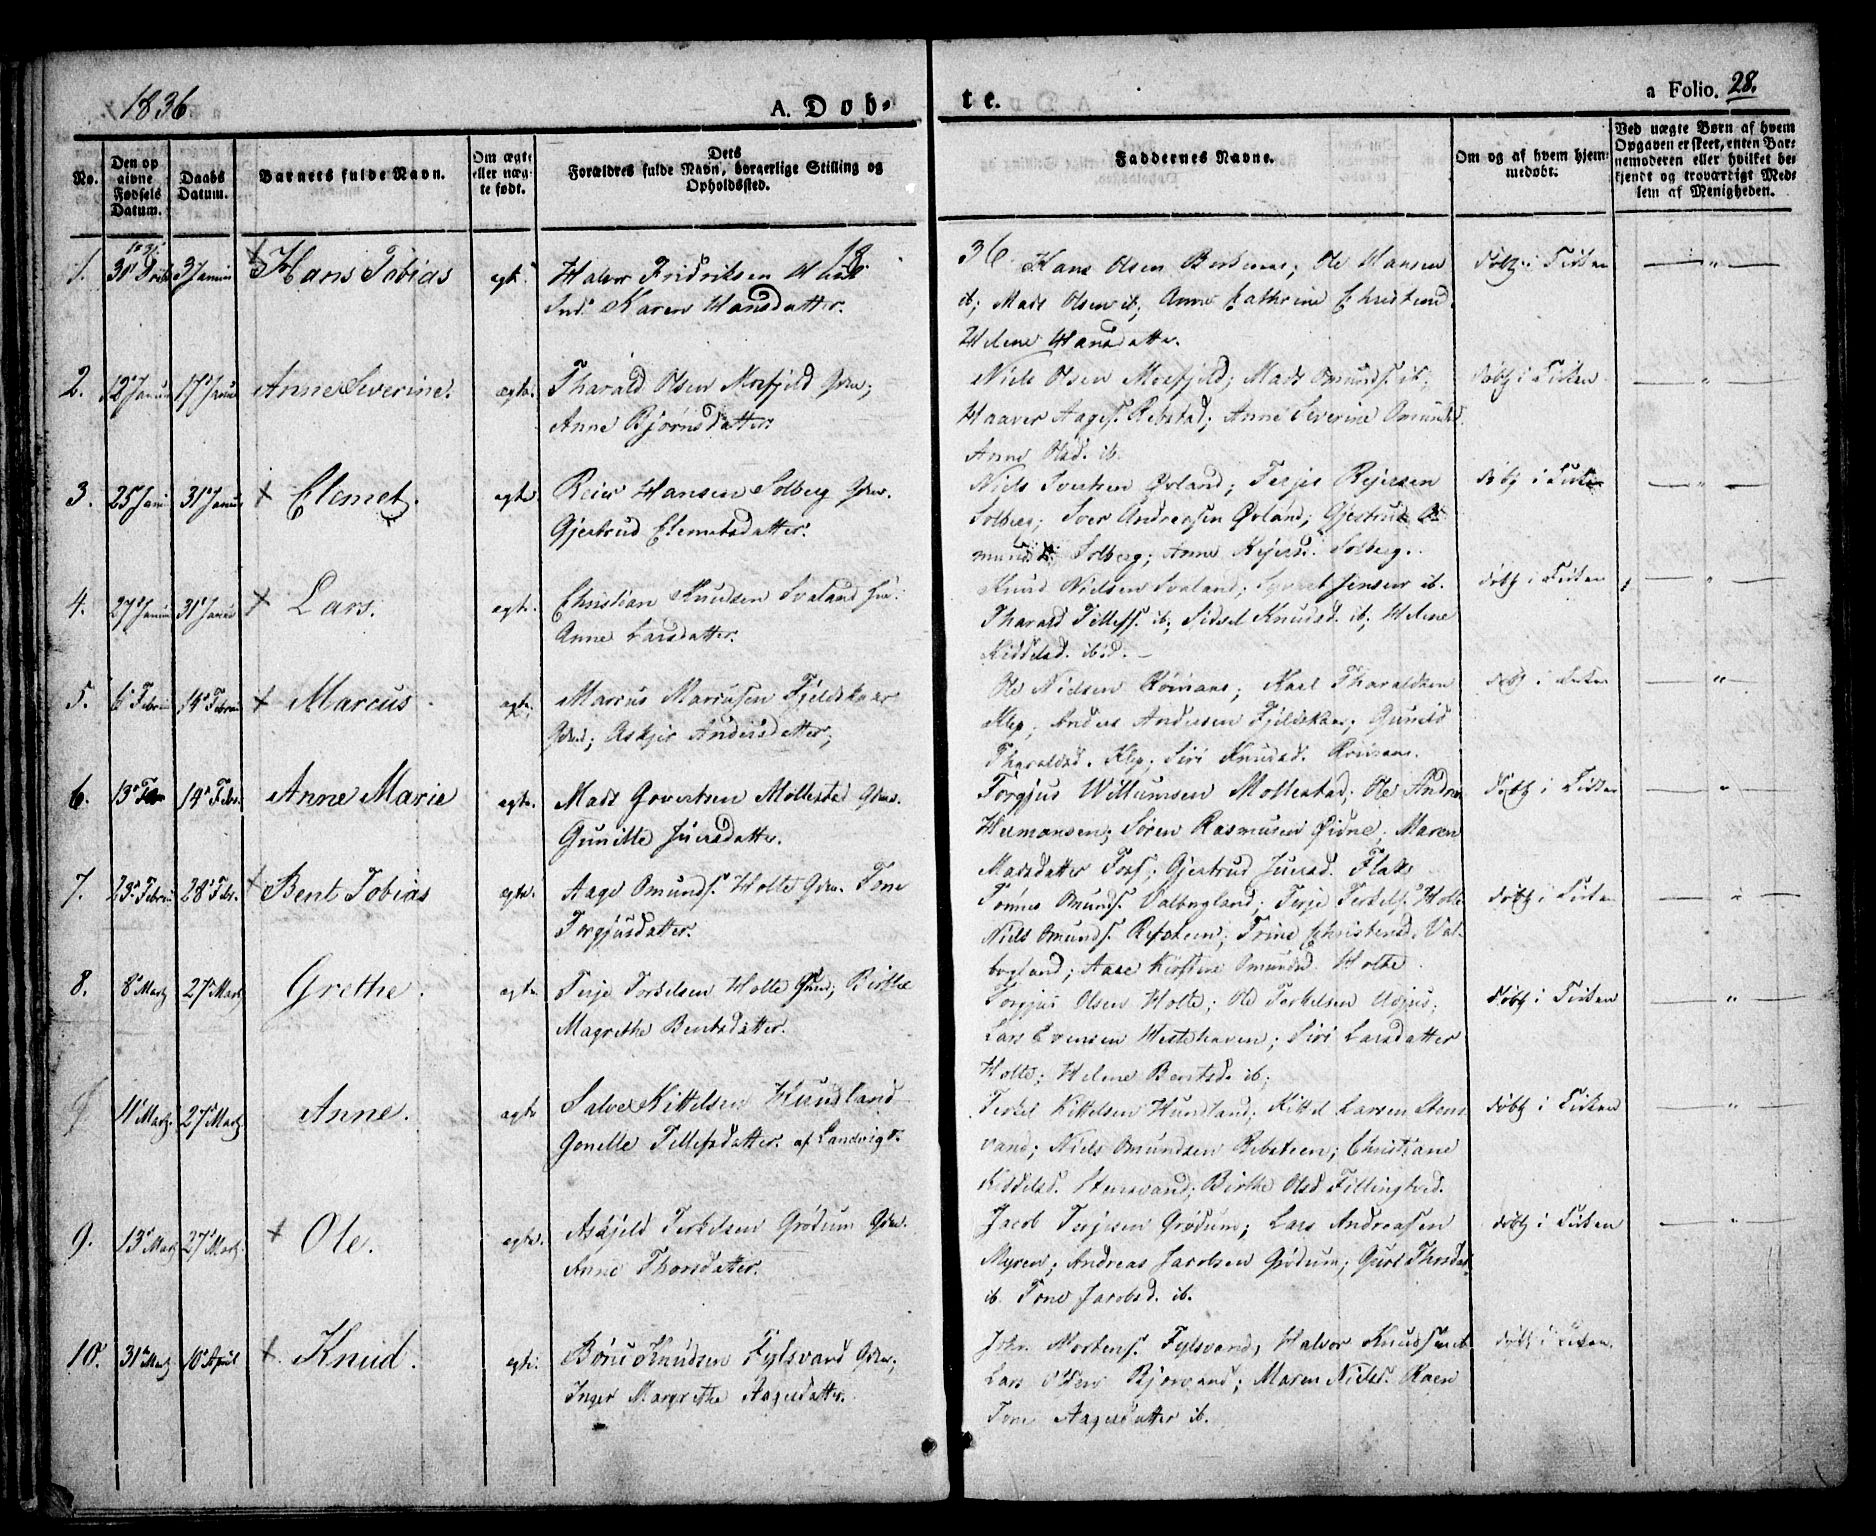 1836
A. Døb-
te.
a Folio. 28.
No.
Den op
givne
Fødsels
Datum.
Daabs
Datum.
Barnets fulde Navn.
Om ægte
eller uæg-
te født.
Dets
Forældres fulde Navn, borgerlige Stilling og
Opholdssted.
Faddernes Navne.
Om og af hvem hjem-
medøbt.
Ved uægte Børn af hvem
Opgaven er skeet, enten Bar-
nemoderen eller hvilket be-
kjendt og troværdigt Med-
lem af Menigheden.
18
36
1. 3 Januar Hans Tobias ægte Halvor Fridriksen
Karen Hansdatter.
Hans Olsen Birkenes; Ole Hansen
ib; Mads Olsen ib; Anne Cathrine Christensd.
Helene Hansdatter.
døbt i Kirken
2. 12 Januar 17 Januar Anne Severine. ægte. Tharald Olsen Mosfjeld Gdm;
Anne Bjørnsdatter
Niels Olsen Mosfjeld; Mads Omunds. ib;
Haaver Aages. Rebstad; Anne Severine Omundsd.
Anne Olsd. ib.
døbt i Kirken
3. 25 Janu 31 Janu + Clemet. ægte. Reier Hansen Solberg Gdm.
Gjertrud Clemetsdatter.
Niels Ivertsen Øvland; Terje Rejersen
Solberg; Iver Andreasen Øvland; Gjertrud O
mundsd. Solberg; Anne Rejersd. Solberg.
døbt i Kirken
4. 27 Janu 31 Janu + Lars. ægte. Christian Knudsen Svaland
Anne Larsdatter.
Knud Nielsen Svaland; Syvert Jensen ib.
Tharald Tellefs. ib; Sidsel Knudsd. ib; Helene
Kiddelsd. ibid.
døbt i Kirken
5. 6 Februar 14 Februar + Marcus ægte. Marcus Marcusen Fjeldskaar
Gdmd; Askjer Andersdatter;
Ole Nielsen Røinaas; Kaal Tharaldsen
Klep; Anders Andersen Fjeldskaar; Gunild
Tharaldsd. Klep. Siri Knudsd. Røinaas.
døbt i Kirken
6. 13 Feb 14 Febr. Anne Marie ægte. Mads Govertsen Møllestad Gdm.
Gunille Juersdatter.
Torgjus Willumsen Mollestad; Ole Andrea
Hermansen; Søren Rasmusen Øidne; Maren
Madsdatter Foss; Gjertrud Juersd. Flak
døbt i Kirken
7. 23 Februar 28 Febr. + Bent Tobias ægte. Aage Omunds. Holte Gdm. Tone
Torgjusdatter.
Tønnes Omunds. Valbogland; Terje Terkels. Holte
Niels Omunds. Refsteen; Trine Christensd. Val-
bogland; Aase Kirstine Omundsd. Holte
døbt i Kirken
8. 8 Martz 27 Martz Grethe. ægte. Terje Torkelsen Holte Gdmd; Birthe
Magrethe Bentsdatter.
Torgjus Olsen Holte; Ole Terkelsen Usjus;
Lars Evensen Hestehaven; Siri Larsdatter
Holte; Helene Bentsd. ib;
døbt i Kirken
9 11 Martz. 27 Martz Anne. ægte Salve Kittelsen Hundland
Gonelle Tellefsdatter. af Landvig S.
Terkel Kittelsen Hundland; Kittel Larsen Stens
vand; Niels Omundsen Rebsteen; Christiane
Kiddelsd. Stensvand; Birthe Olsd Tellingtved.
døbt i Kirken
9. 13 Martz 27 Martz. + Ole. ægte. Askjeld Terkelsen Grødum Gdm.
Anne Thorsdatter.
Jacob Terjesen Grødum; Lars Andreasen
Myren; Andreas Jacobsen Grødum; Guri Thorsdat
ib. Tone Jacobsd. ib.
døbt i Kirken
10. 31 Martz 10 April + Knud. ægte. Børu Knudsen Fylsvand Gdm;
Inger Margrethe Aagesdatter.
John Mortens. Fylsvand, Halvor Knudsen ib
Lars Olsen Bjorvand; Maren Nielsd. Roen
Tone Aagesdatter ib.
døbt i Kirken.